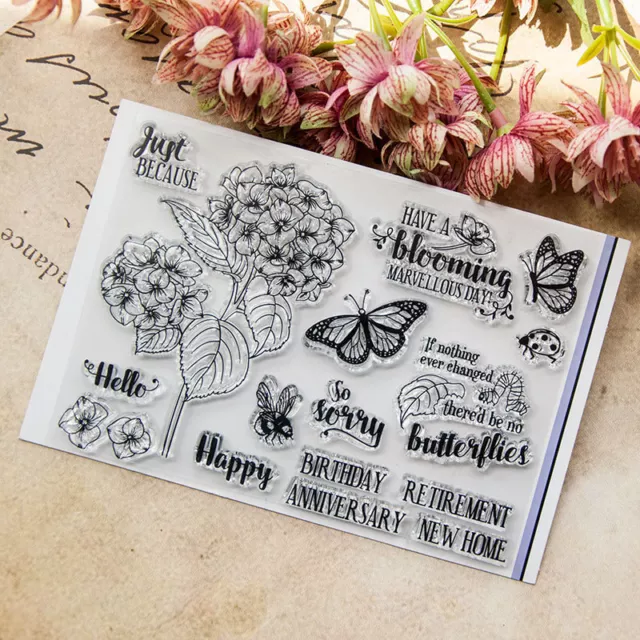 Just
BECAUSE
HAVE A
blooming
MARVELLOUS DAY!
If nothing
ever changed
there'd be no
butterflies
Hello
So
sorry
Happy
BIRTHDAY
ANNIVERSARY
RETIREMENT
NEW HOME
dance